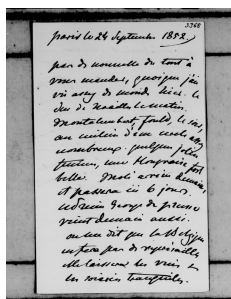 3368
paris le 24 Septembre 1852
pas de nouvelle du tout à
vous mander, quoique j'ai
vu assez de monde hier. le
duc de Noailles le matin.
Montalembert, fould, le soir,
au milieu d'un cercle assez
nombreux. quelques jolies
femmes, une hongroise fort
belle. Molé arrive demain
et passera ici 6 jours.
le prince George de prusse
vient demain aussi.
on me dit que le
pas de
les uns, et
les soirées tranquilles.